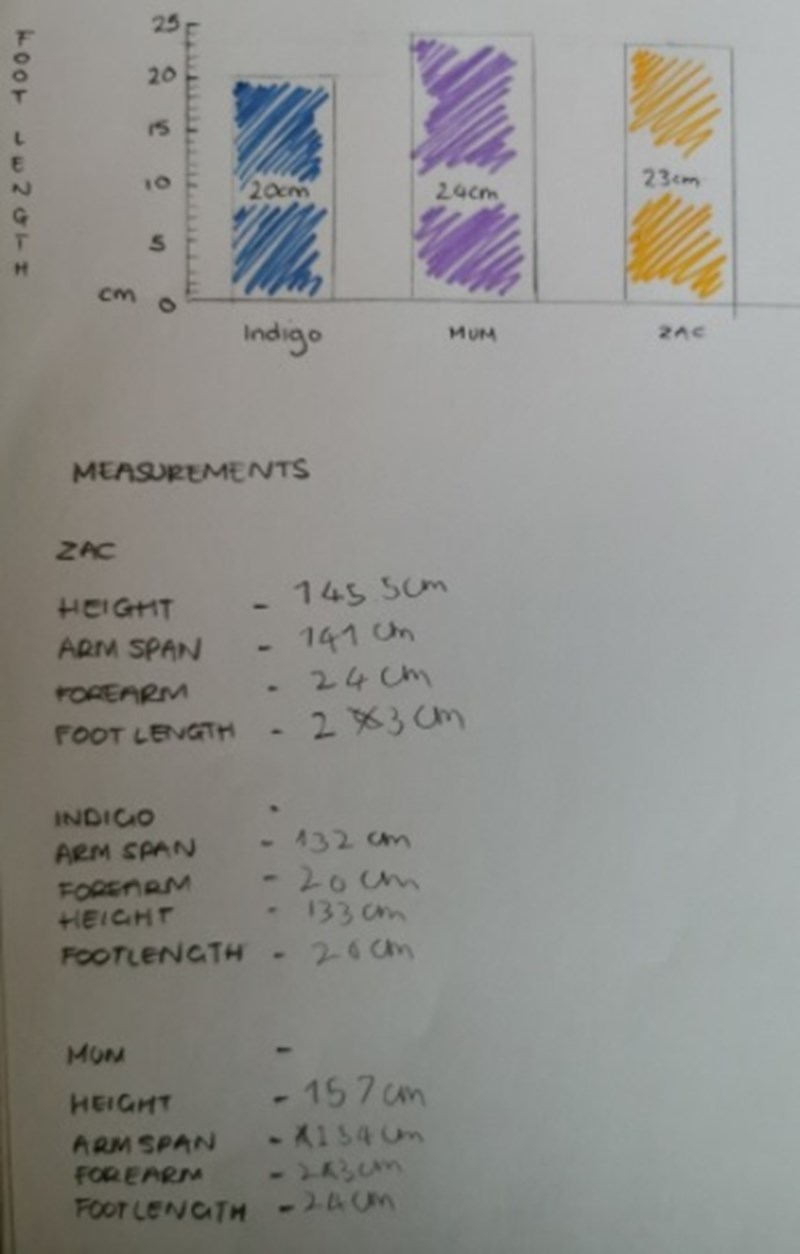 FOOT LENGTH
25
20
15
10
5
cm 0
20cm 24cm 23cm
Indigo MUM ZAC
MEASUREMENTS
ZAC
HEIGHT - 145.5cm
ARM SPAN - 141 cm
FOREARM - 24 cm
FOOT LENGTH - 23 cm
INDIGO
ARM SPAN - 132 cm
FOREARM - 20 cm
HEIGHT - 133cm
FOOTLENGTH - 20cm
MUM -
HEIGHT - 157cm
ARM SPAN - 154cm
FOREARM - 23cm
FOOTLENGTH - 24cm